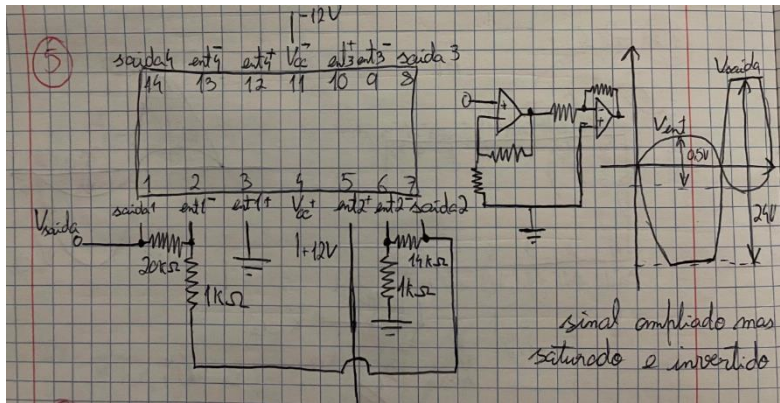 -12V
5
saída4 ent4⁻ ent4⁺ Vcc⁻ ent3⁺ ent3⁻ saída 3
14 13 12 11 10 9 8
1 2 3 4 5 6 7
saída1 ent1⁻ ent1+ Vcc⁺ ent2⁺ ent2⁻ saída2
Vsaída
20KΩ
+12V
14KΩ
1KΩ
1KΩ
+
-
-
+
Vsaída
Vent
0,5V
24V
sinal ampliado mas
saturado e invertido